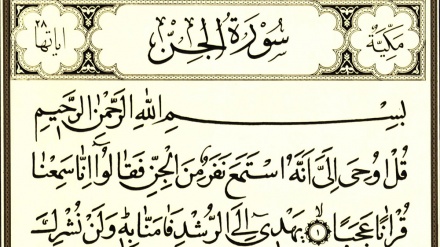 مكية
سُورَةُ الْجِنِّ
اٰيَاتُهَا ٢٨
بِسْمِ اللهِ الرَّحْمٰنِ الرَّحِيمِ
قُلْ اُوحِىَ اِلَىَّ اَنَّهُ اسْتَمَعَ نَفَرٌ مِنَ الْجِنِّ فَقَالُوٓا اِنَّا سَمِعْنَا
قُرْاٰنًا عَجَبًا ١ يَهْدِىٓ اِلَى الرُّشْدِ فَاٰمَنَّا بِهٖ وَلَنْ نُشْرِكَ